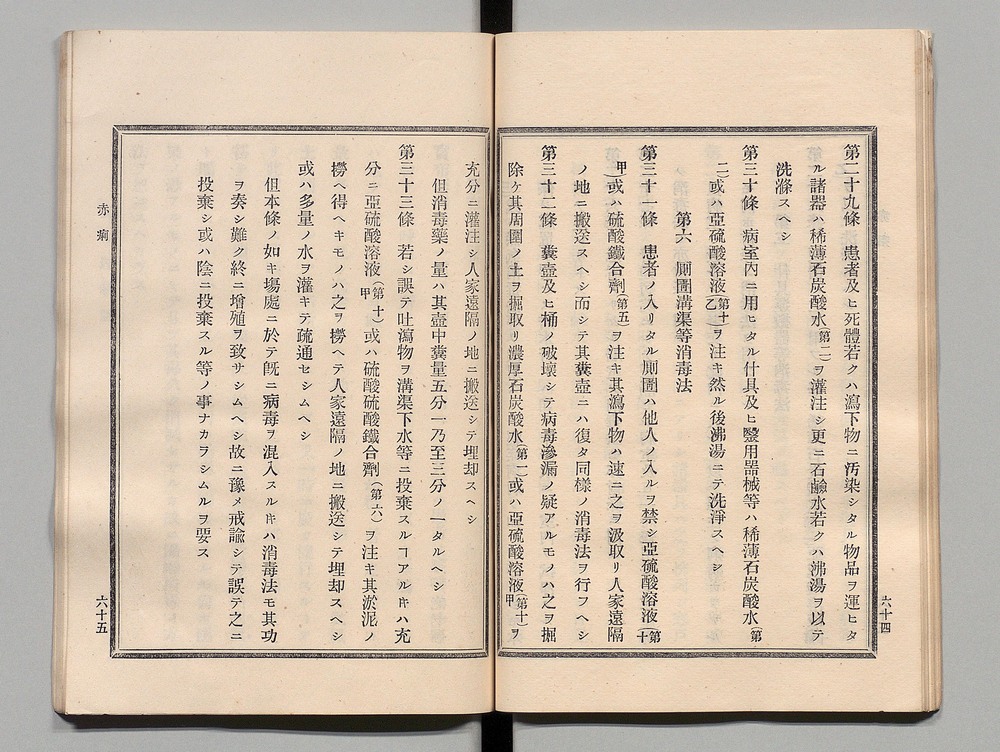 第二十九條　患者及ヒ死體若クハ瀉下物ニ汚染シタル物品ヲ運ヒタ
ル諸器ハ稀薄石炭酸水(第二)ヲ灌注シ更ニ石鹼水若クハ沸湯ヲ以テ
洗滌スヘシ
第三十條　病室內ニ用ヒタル什具及ヒ醫用器械等ハ稀薄石炭酸水(第
二)或ハ亞硫酸溶液(第十乙)ヲ注キ然ル後沸湯ニテ洗淨スヘシ
第六　厠圊溝渠等消毒法
第三十一條　患者ノ入リタル厠圊ハ他人ノ入ルヲ禁シ亞硫酸溶液(第十
甲)或ハ硫酸鐵合劑(第五)ヲ注キ其瀉下物ハ速ニ之ヲ汲取リ人家遠隔
ノ地ニ搬送スヘシ而シテ其糞壺ニハ復タ同樣ノ消毒法ヲ行フヘシ
第三十二條　糞壺及ヒ桶ノ破壞シテ病毒滲漏ノ疑アルモノハ之ヲ掘
除ケ其周圍ノ土ヲ掘取リ濃厚石炭酸水(第一)或ハ亞硫酸溶液(第十甲)ヲ
六十四
充分ニ灌注シ人家遠隔ノ地ニ搬送シテ埋却スヘシ
但消毒藥ノ量ハ其壺中糞量五分一乃至三分ノ一タルヘシ
第三十三條　若シ誤テ吐瀉物ヲ溝渠下水等ニ投棄スルヿアルㇳキハ充
分ニ亞硫酸溶液(第十甲)或ハ硫酸硫酸鐵合劑(第六)ヲ注キ其淤泥ノ
撈ヘ得ヘキモノハ之ヲ撈ヘテ人家遠隔ノ地ニ搬送シテ埋却スヘシ
或ハ多量ノ水ヲ灌キテ疏通セシムヘシ
但本條ノ如キ塲處ニ於テ旣ニ病毒ヲ混入スルㇳキハ消毒法モ其功
ヲ奏シ難ク終ニ增殖ヲ致サシムヘシ故ニ豫メ戒諭シテ誤テ之ニ
投棄シ或ハ陰ニ投棄スル等ノ事ナカヲシムルヲ要ス
赤痢
六十五